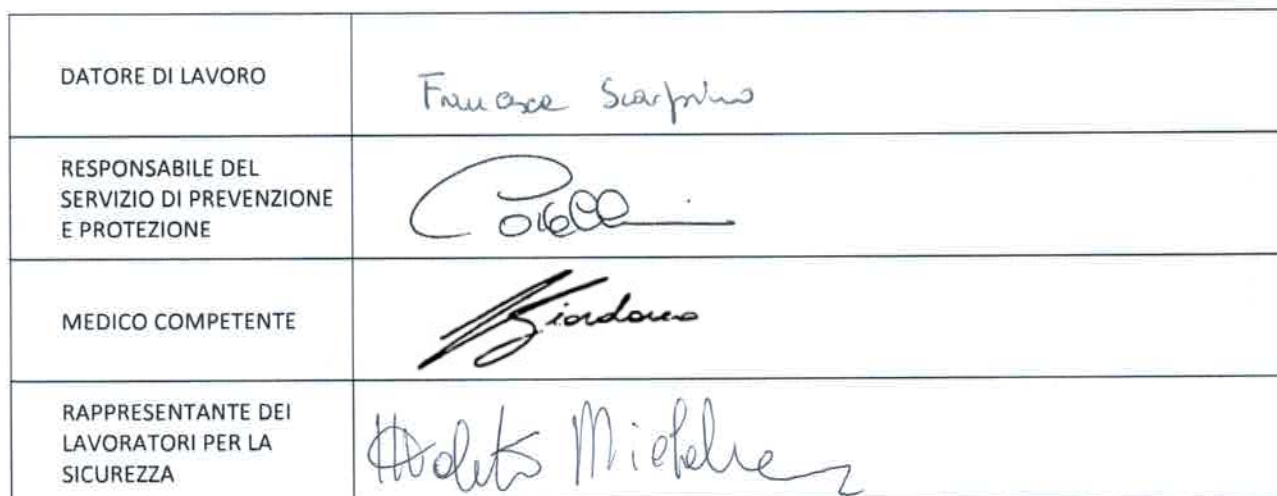 DATORE DI LAVORO
Francesca Scarpino
RESPONSABILE DEL
SERVIZIO DI PREVENZIONE
E PROTEZIONE
MEDICO COMPETENTE
Giordano
RAPPRESENTANTE DEI
LAVORATORI PER LA
SICUREZZA